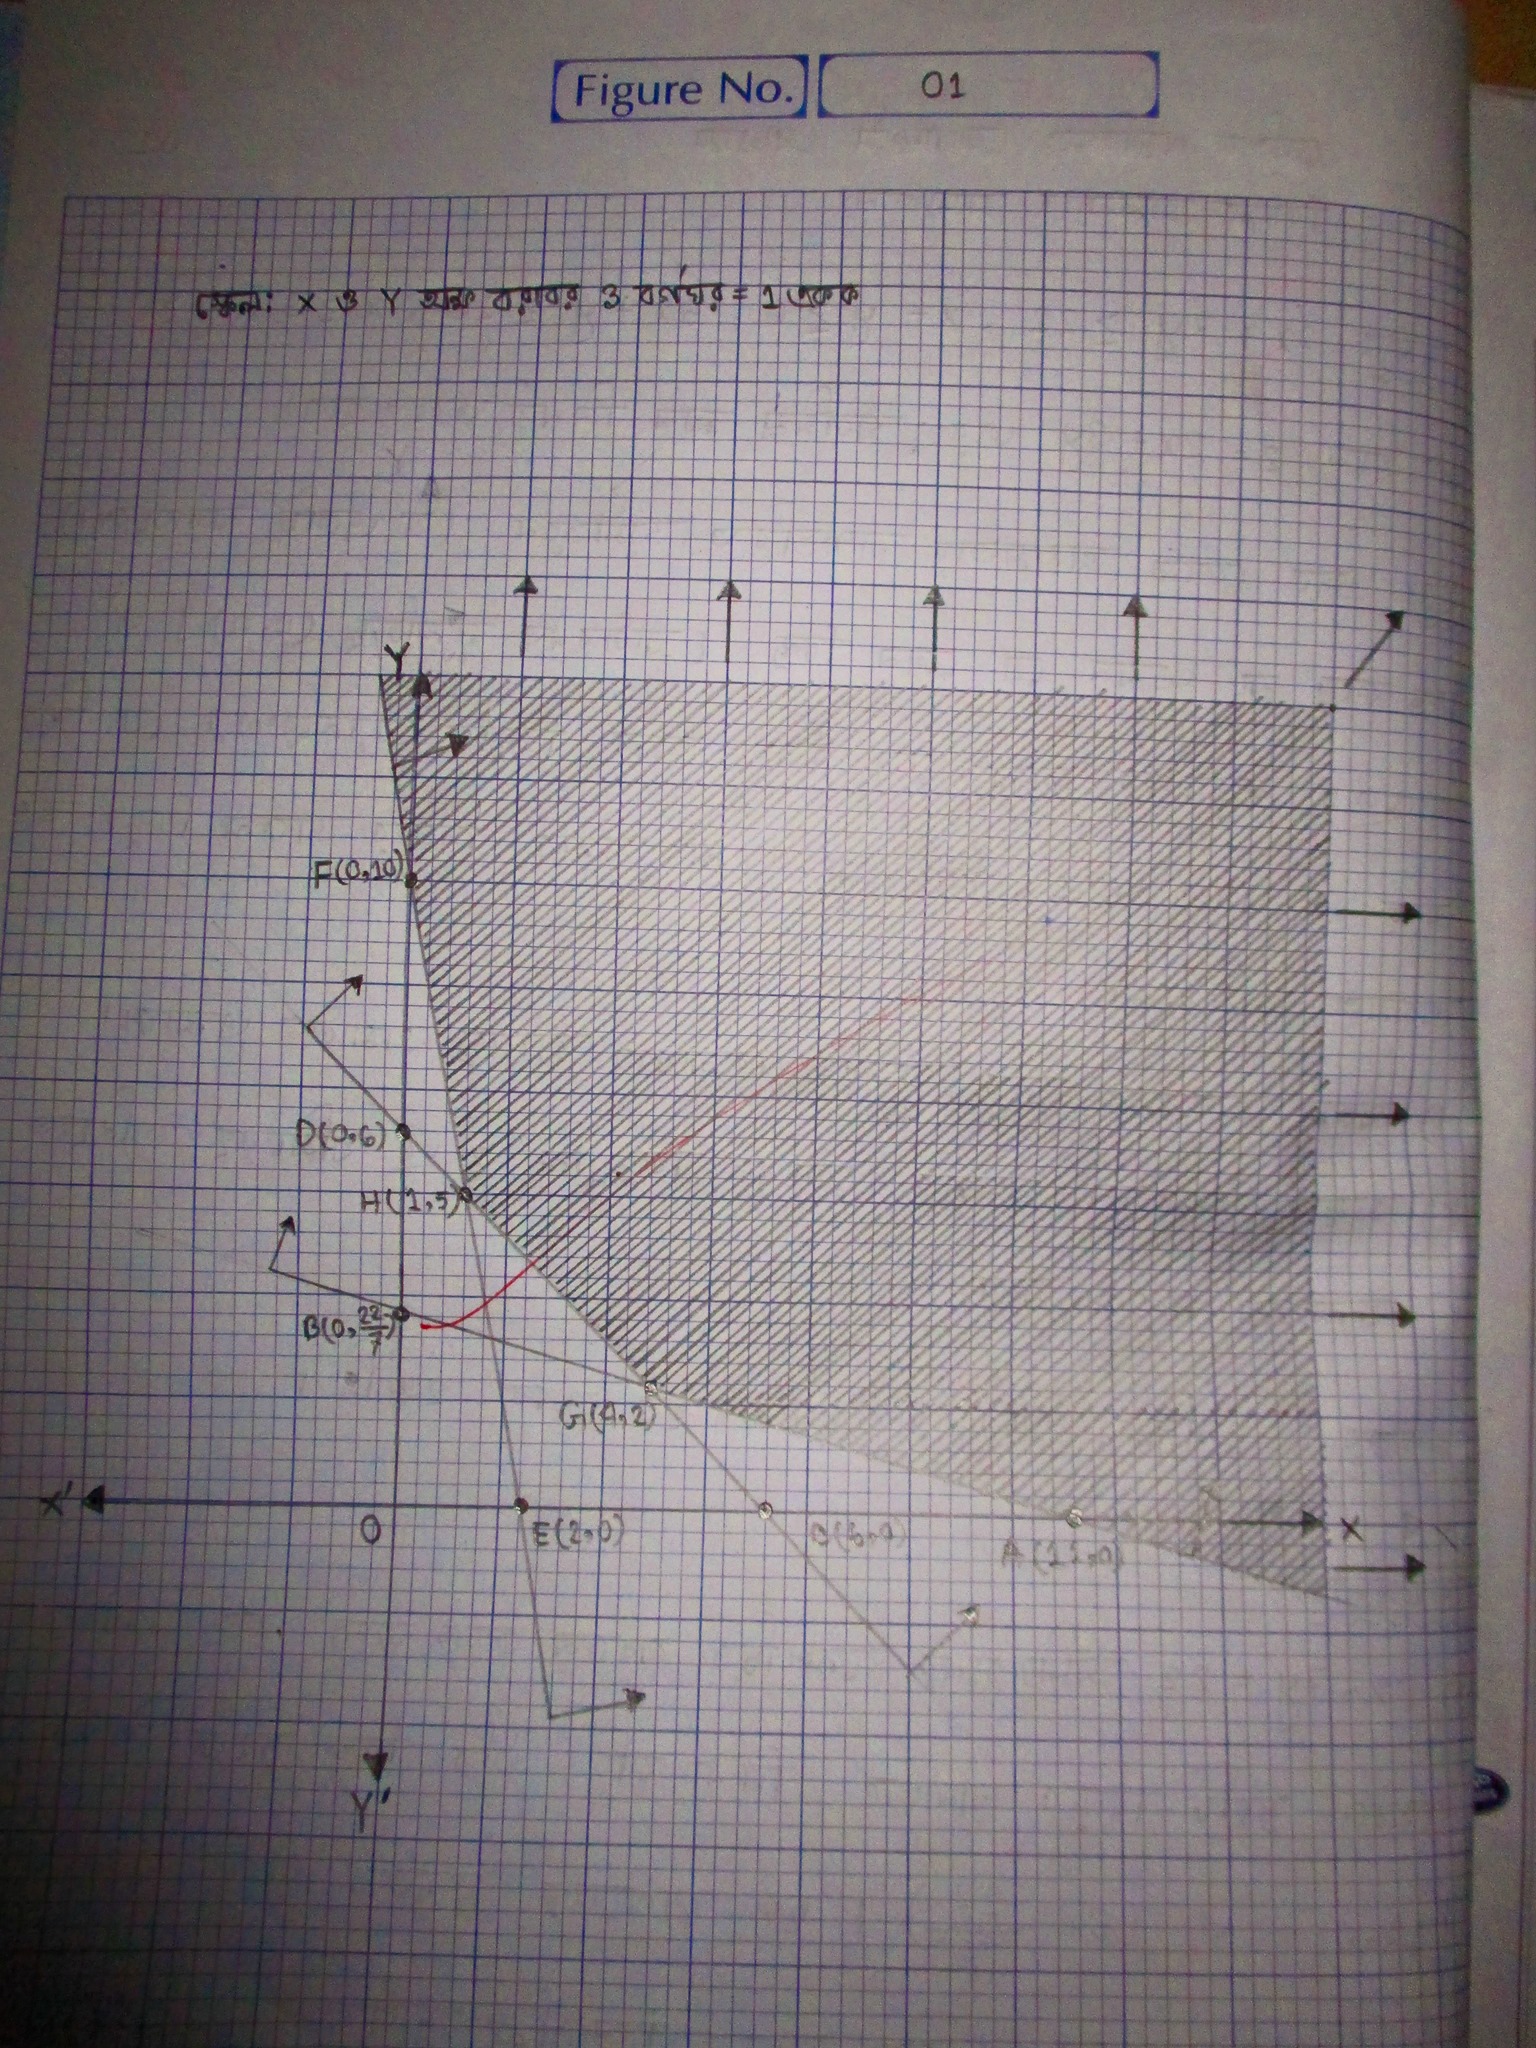 Figure No. 01
স্কেল: X ও Y অক্ষ বরাবর 3 বর্গঘর = 1 একক
Y
F(0,10)
D(0,6)
H(1,5)
B(0, 22/7)
G(4,2)
X'
O
E(2,0)
C(6,0)
A(11,0)
X
Y'